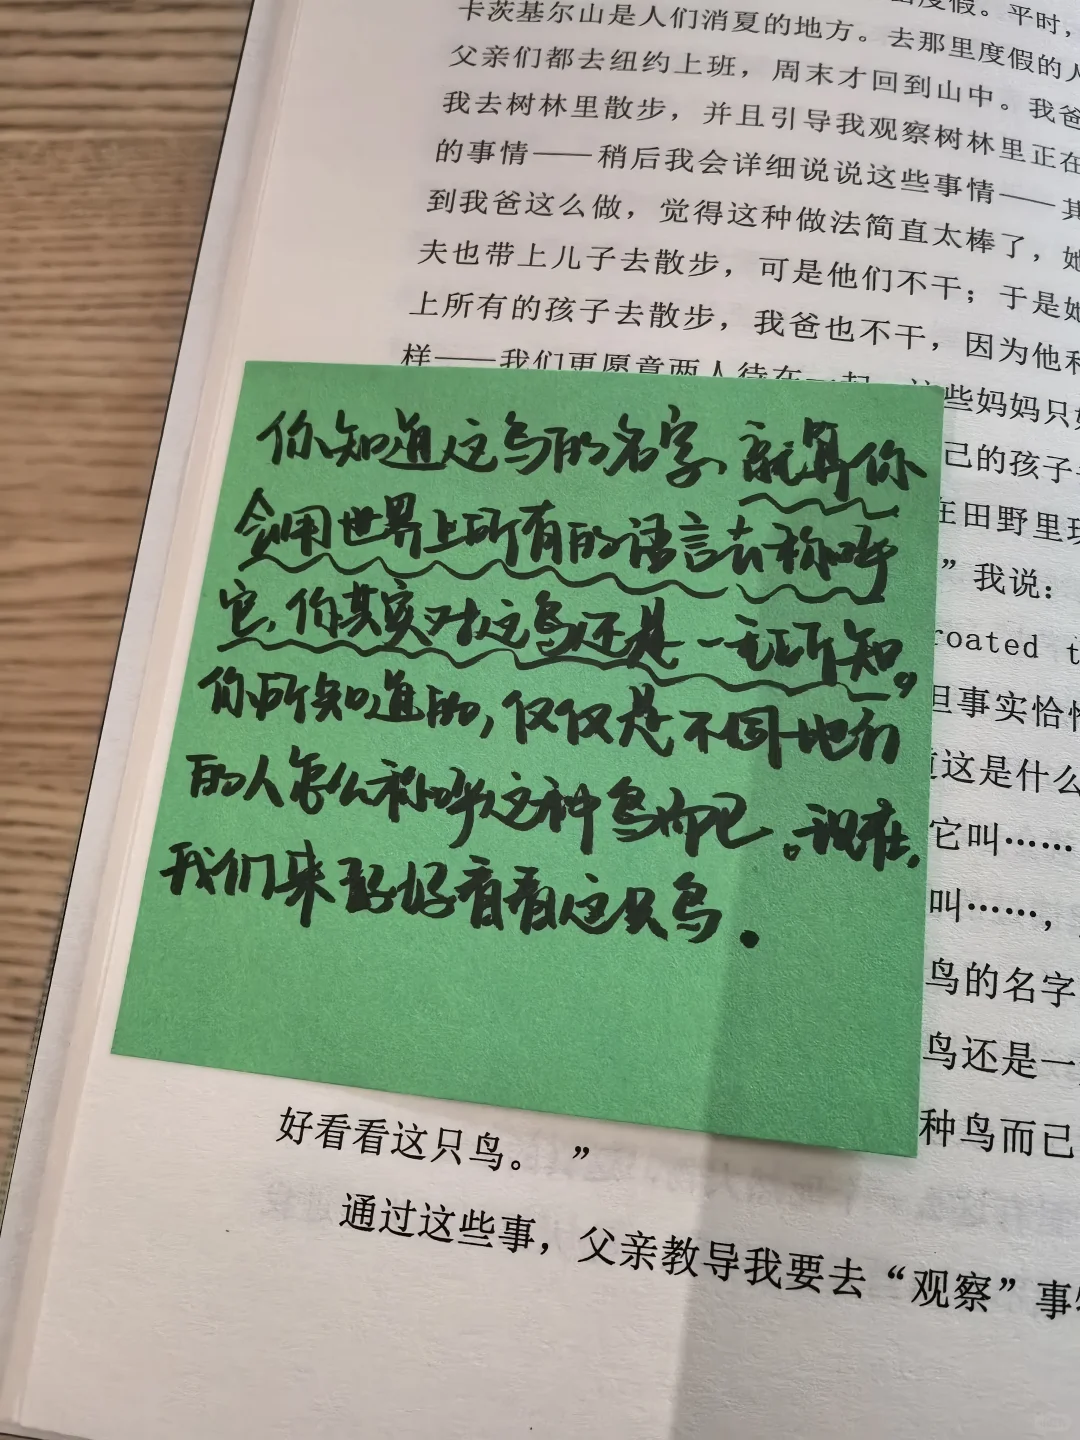 度假。平时，
卡茨基尔山是人们消夏的地方。去那里度假的人
父亲们都去纽约上班，周末才回到山中。我爸
我去树林里散步，并且引导我观察树林里正在
的事情——稍后我会详细说说这些事情——其
到我爸这么做，觉得这种做法简直太棒了，她
夫也带上儿子去散步，可是他们不干；于是她
上所有的孩子去散步，我爸也不干，因为他和
样——我们更愿意两人待在一起。这些妈妈只好
己的孩子
在田野里玩
”我说：
roated t
但事实恰恰
道这是什么
它叫……
叫……，
鸟的名字
鸟还是一
种鸟而已
你知道这鸟的名字，就算你
会用世界上所有的语言去称呼
它，你其实对这鸟还是一无所知。
你所知道的，仅仅是不同地方
的人怎么称呼这种鸟而已。现在，
我们来好好看看这只鸟。
好看看这只鸟。”
通过这些事，父亲教导我要去“观察”事物